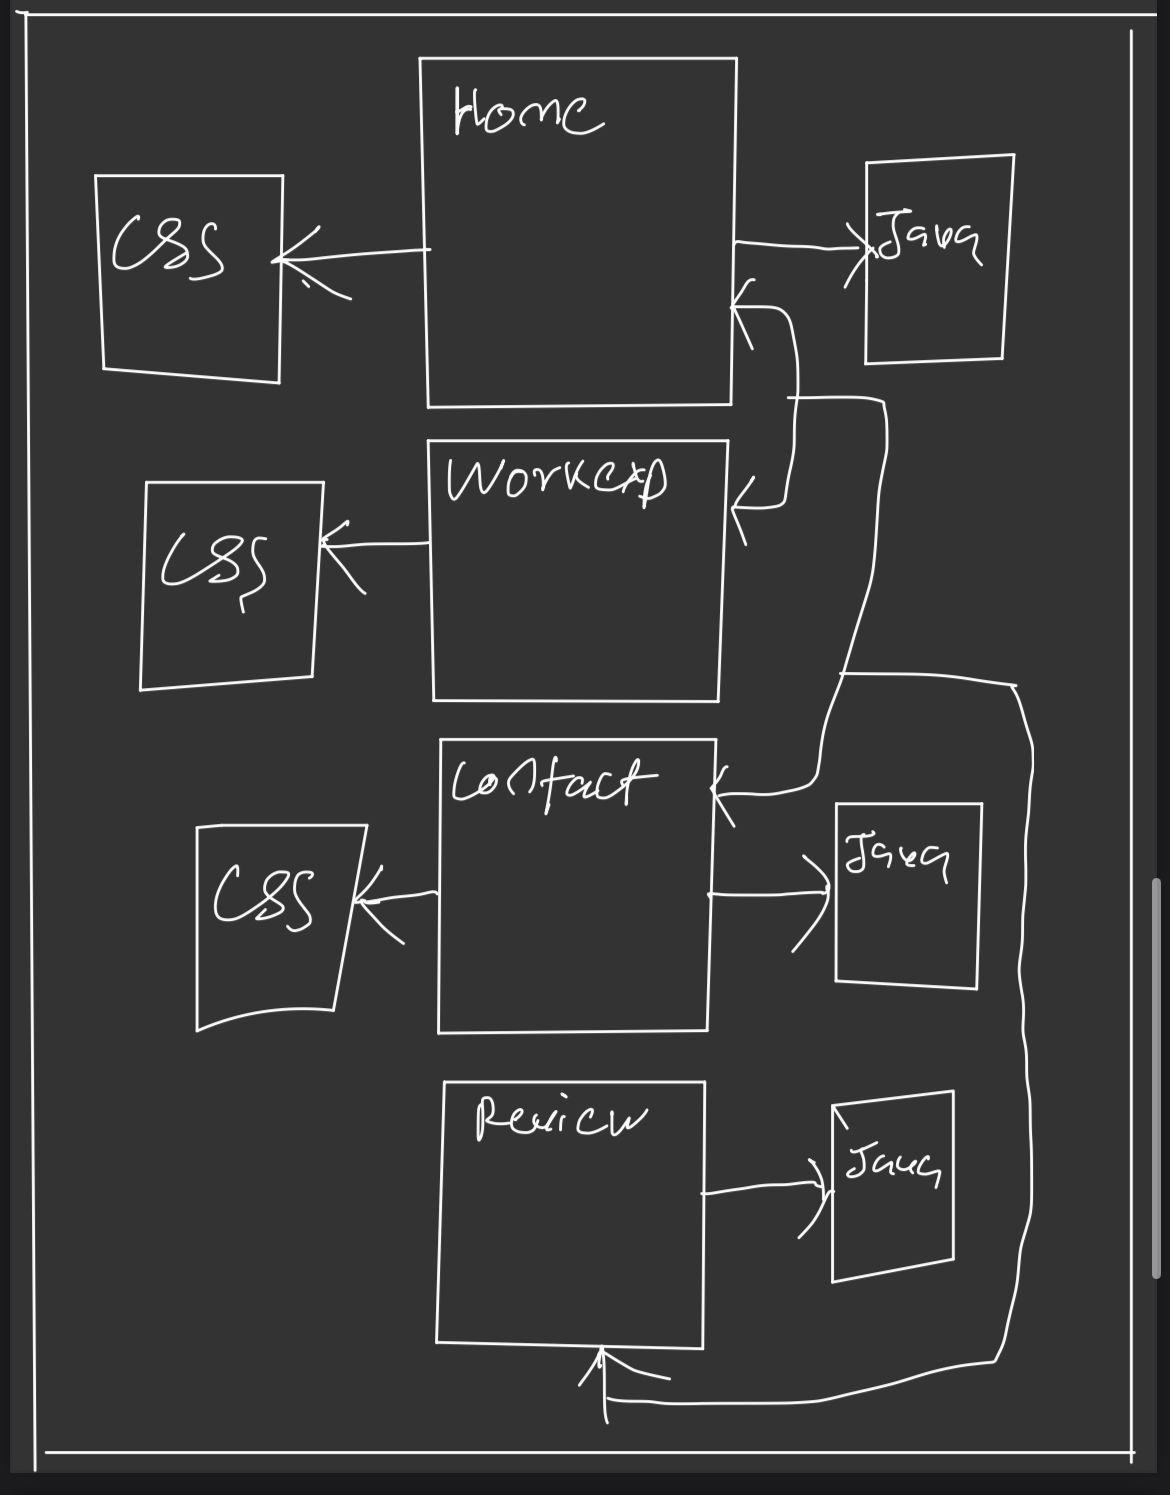 Home
CSS
Java
Workexp
CSS
Contact
CSS
Java
Review
Java